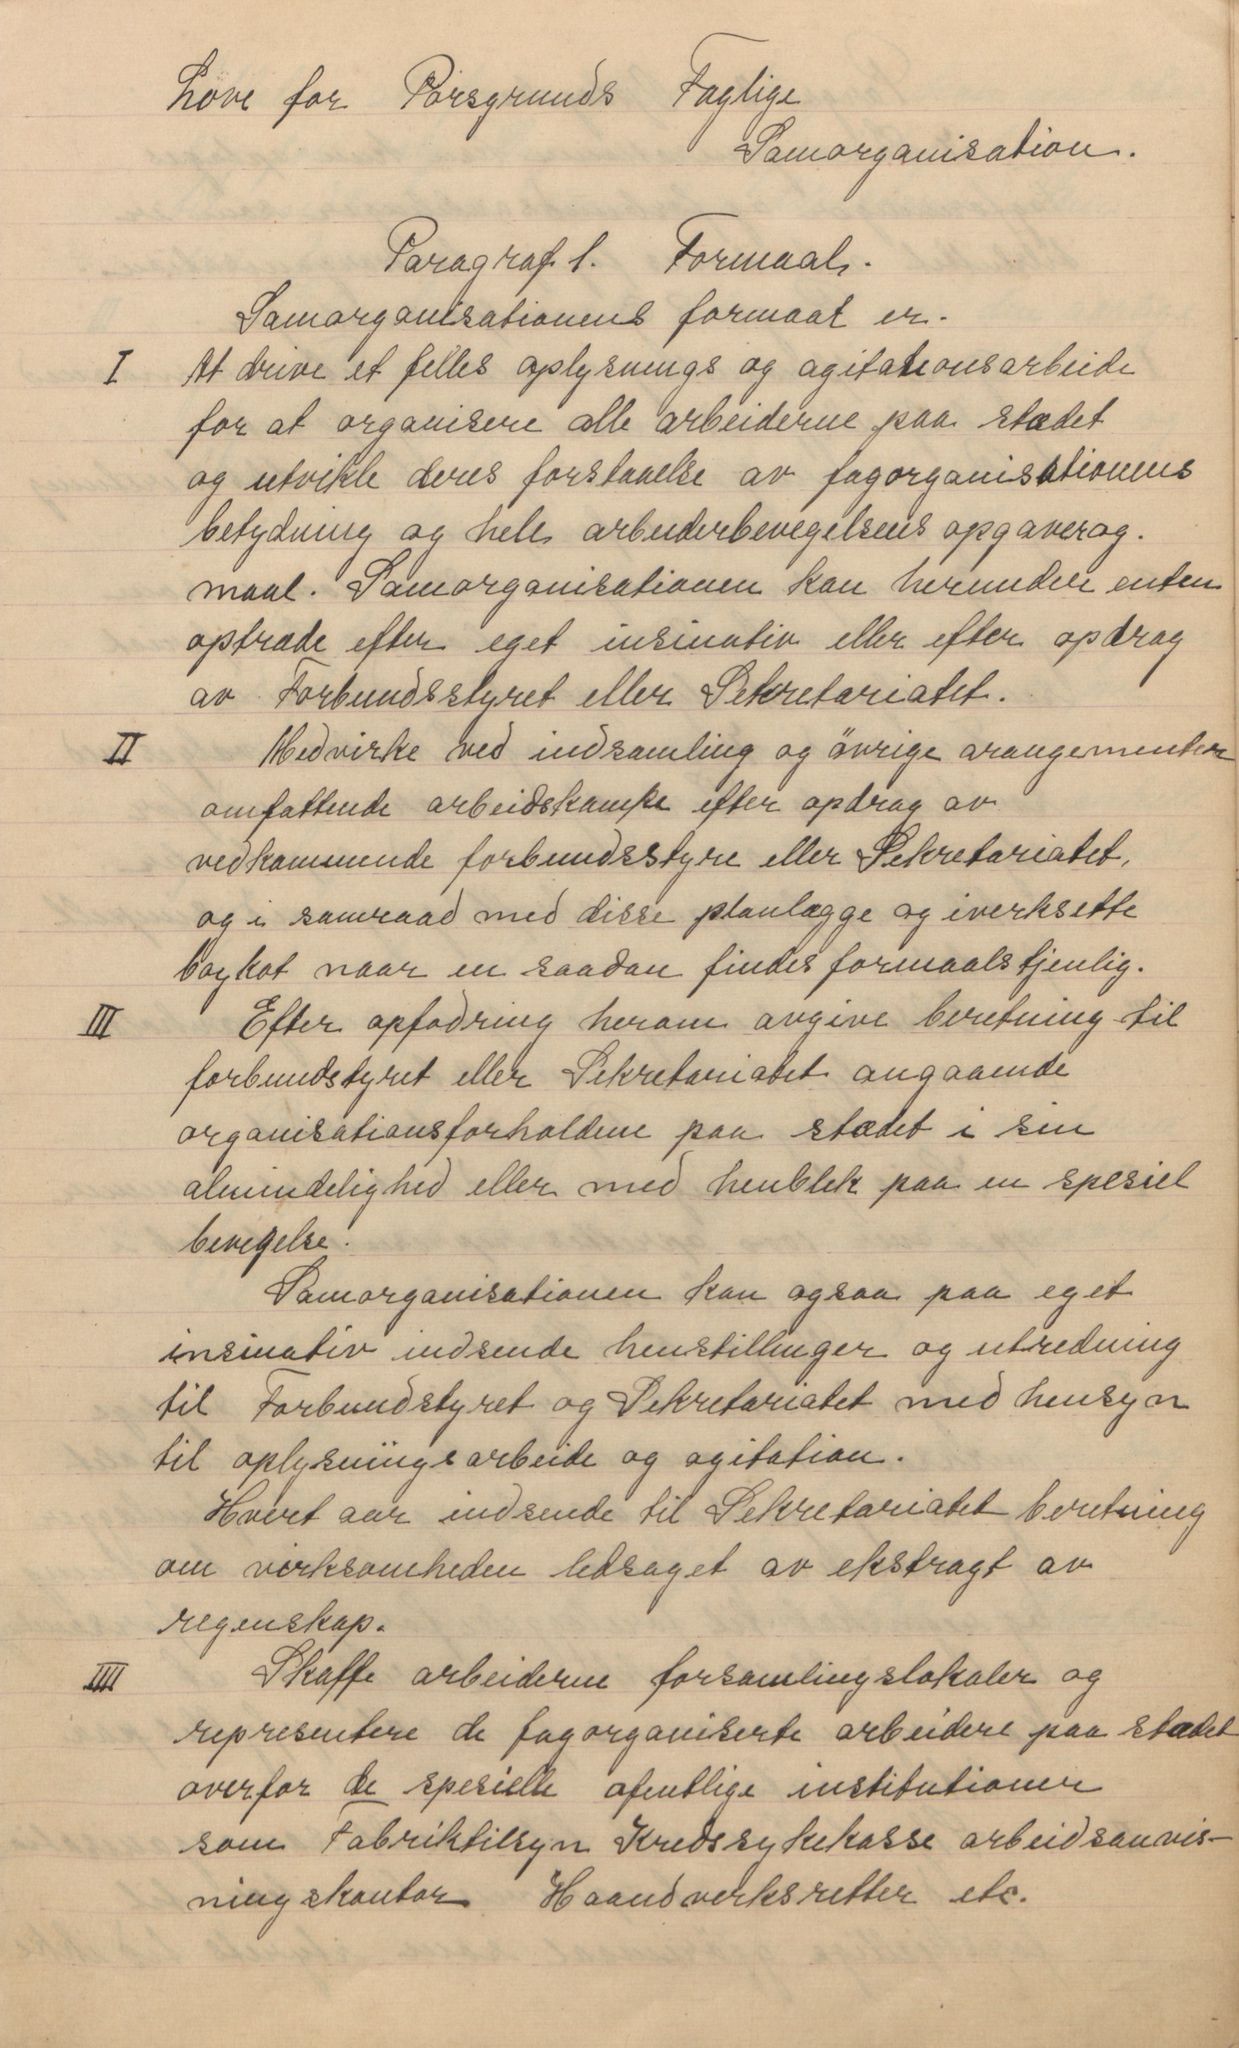 Love for Porsgrunds Faglige
Samorganisation.
Paragraf 1. Formaal.
Samorganisationens formaal er.
I At drive et felles oplysnings og agitationsarbeide
for at organisere alle arbeiderne paa stedet
og utvikle deres forstaaelse av fagorganisationens
betydning og hele arbeiderbevegelsens opgaver og.
maal. Samorganisationen kan herunder enten
optrade efter eget insinativ eller efter opdrag
av Forbundsstyret eller Sekretariatet.
II Medvirke ved indsamling og övrige arangementer
omfattende arbeidskampe efter opdrag av
vedkommende forbundsstyre eller Sekretariatet,
og i samraad med disse planlægge og iverksette
boykot naar en saadan findes formaalstjenlig.
III Efter opfodring herom avgive beretning til
forbundstyret eller Sekretariatet angaaende
organisationsforholdene paa stedet i sin
almindelighed eller med henblek paa en spesiel
bevegelse.
Samorganisationen kan ogsaa paa eget
insinativ indsende henstillinger og utredning
til Forbundstyret og Sekretariatet med hensyn
til oplysningsarbeide og agitation.
Hvert aar indsende til Sekretariatet beretning
om virksomheden ledsaget av ekstragt av
regenskap.
IIII Skaffe arbeiderne forsamlingslokaler og
representere de fagorganiserte arbeidere paa stedet
overfor de spesielle ofentlige institutioner
som Fabriktilsyn Kredssykekasse arbeidsanvis-
ningskontor Haandverksretter etc.